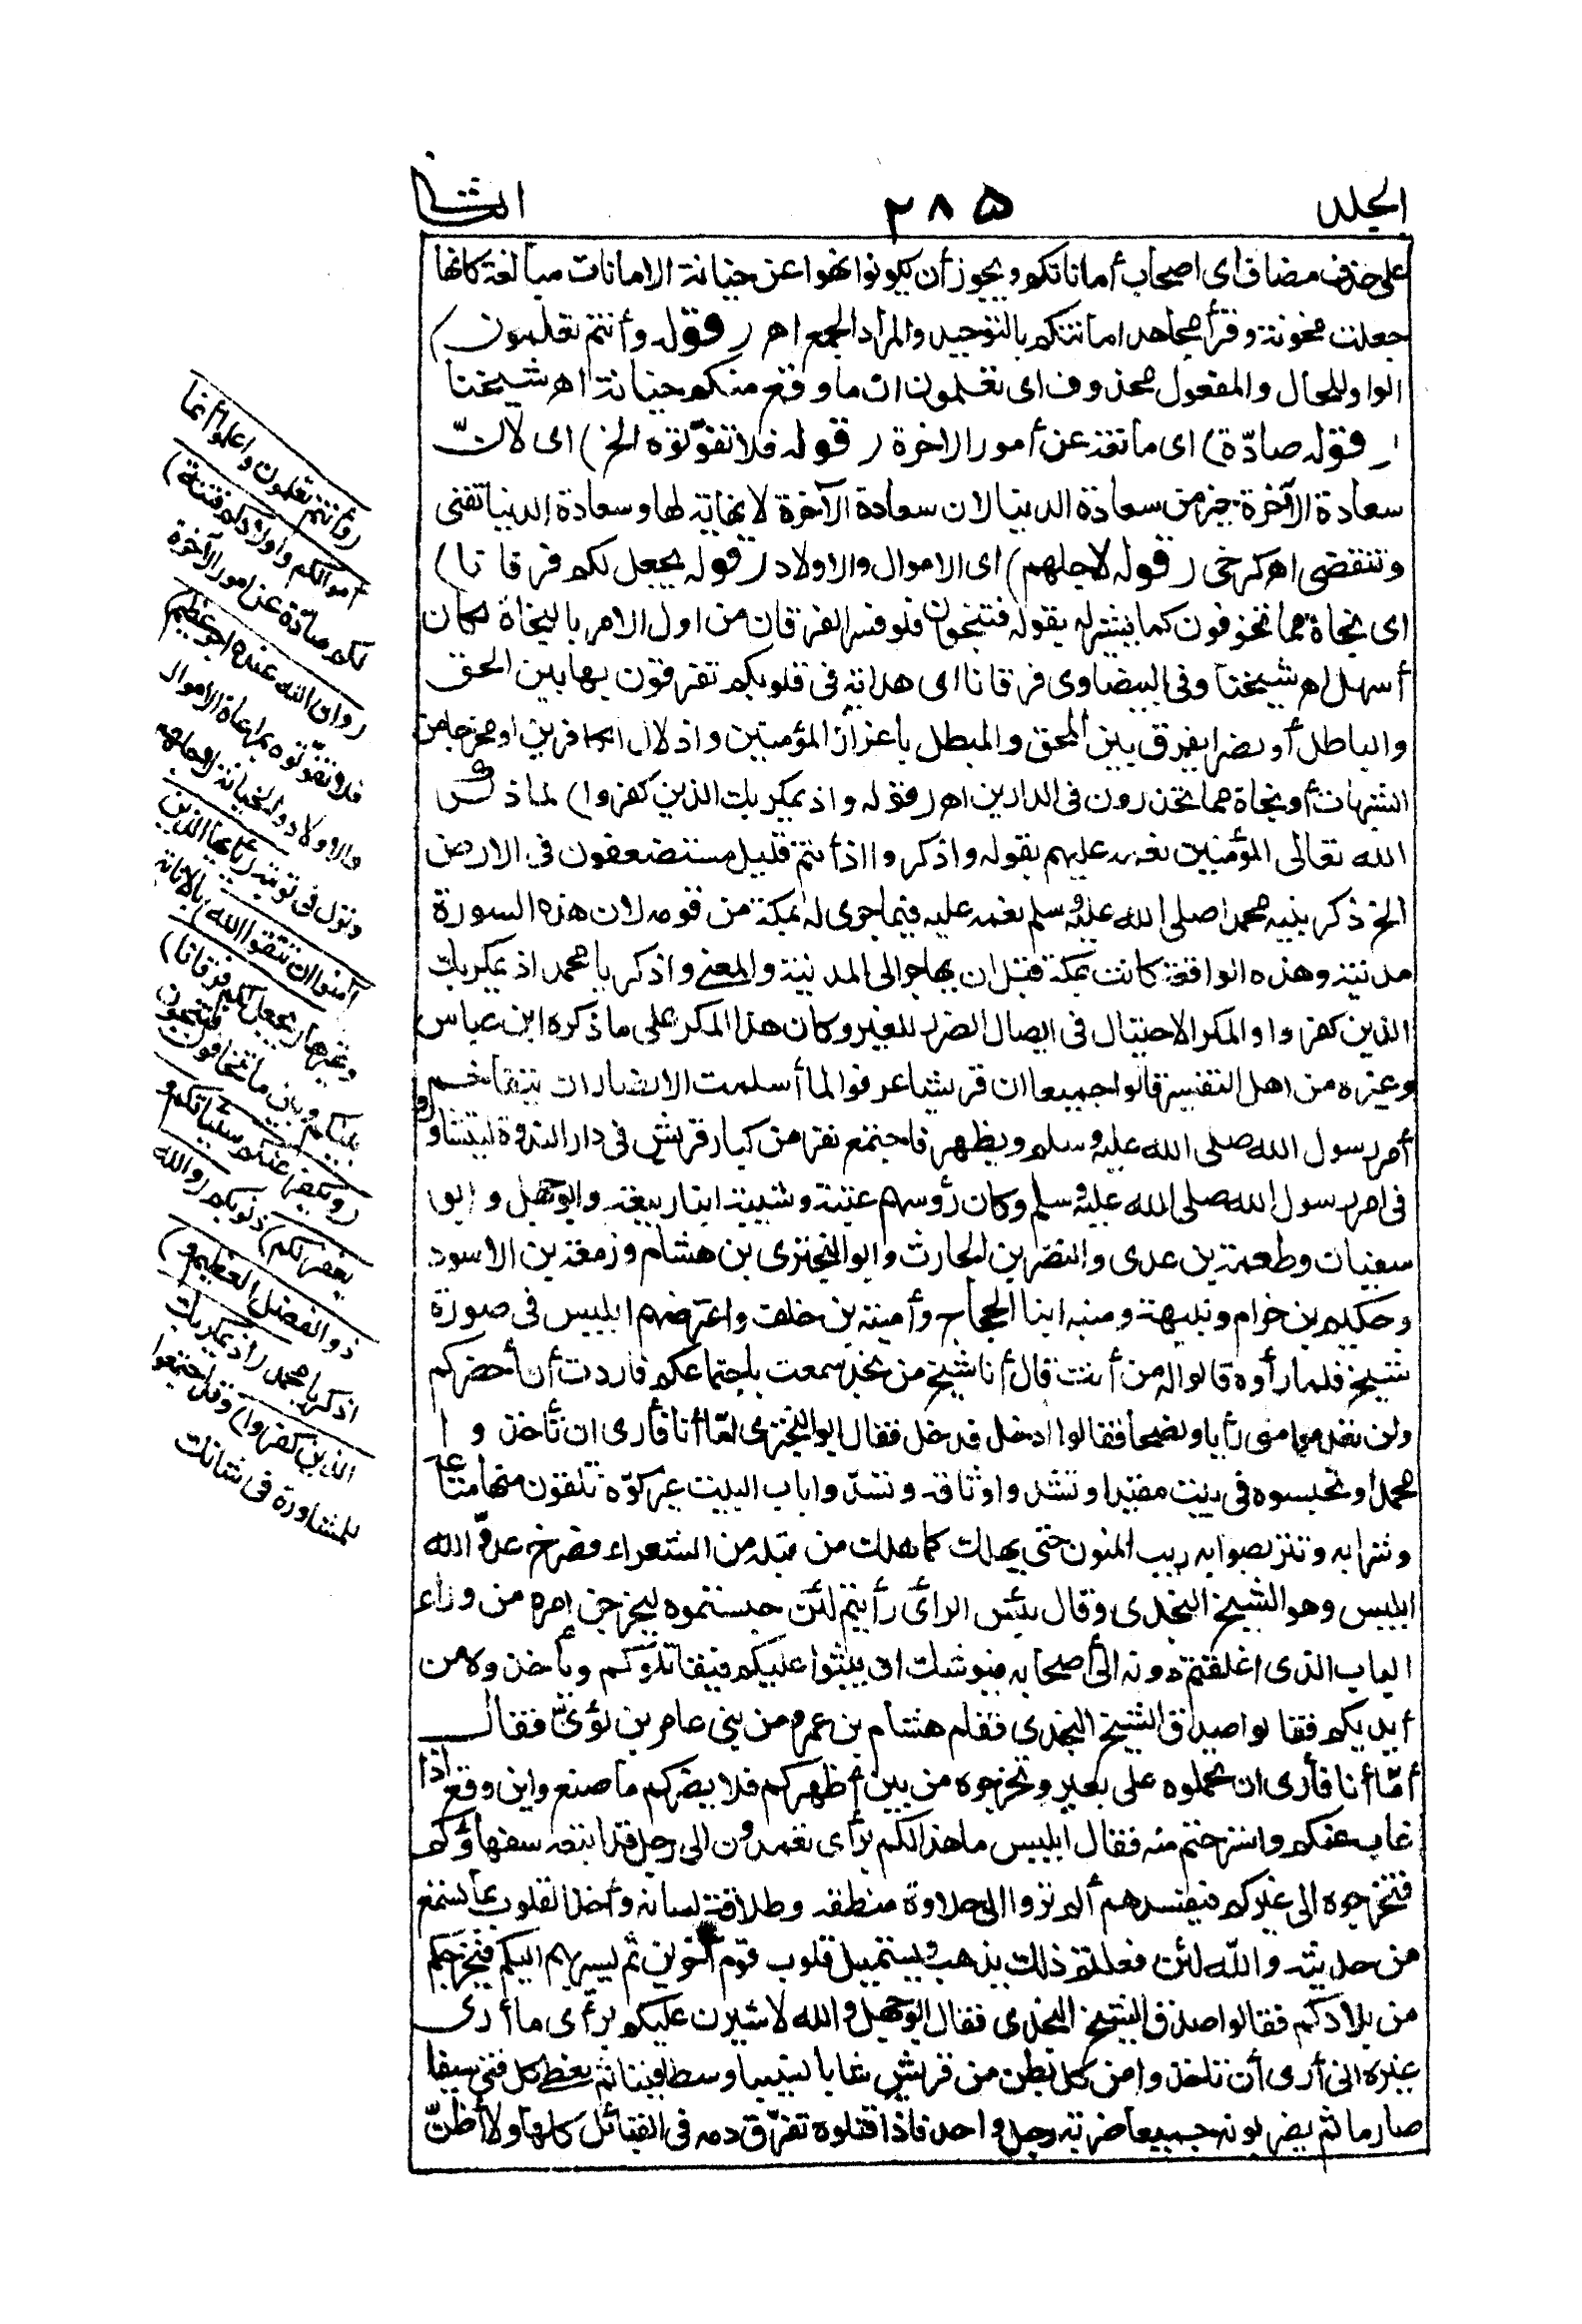 الجلد ٢٨٥ الثانى
على حذف مضاف أى اصحاب أماناتكم ويجوز أن يكونوا نهوا عن خيانة الامانات مبالغة كانها
جعلت مخونة وقرأ مجاهد امانتكم بالتوحيد والمراد الجمع اهـ (قوله وأنتم تعلمون)
الواو للحال والمفعول محذوف اى تعلمون ان ما وقع منكم خيانة اهـ شيخنا
(قوله صادّة) اى مانعة عن أمور الاخرة (قوله فلا تفوّتوه الخ) اى لانّ
سعادة الآخرة خير من سعادة الدنيا لان سعادة الآخرة لانهاية لها وسعادة الدنيا تفنى
وتنقضى اهـ كرخى (قوله لاجلهم) اى الاموال والاولاد (قوله يجعل لكم فرقانا)
اى نجاة مما تخوفون كما يشير له بقوله فتنجون فلو فسر الفرقان من اول الامر بالنجاة لكان
أسهل اهـ شيخنا وفى البيضاوى فرقانا اى هداية فى قلوبكم تفرقون بها بين الحق
والباطل أو نصرا يفرق بين المحق والمبطل باعزاز المؤمنين واذلال الكافرين او مخرجا من
الشبهات أو نجاة مما تحذرون فى الدارين اهـ (قوله واذ يمكر بك الذين كفروا) لما ذكر
الله تعالى المؤمنين نعمه عليهم بقوله واذكروا اذ أنتم قليل مستضعفون فى الارض
الخ ذكر نبيه محمدا صلى الله عليه وسلم نعمه عليه فيما جرى له بمكة من قومه لان هذه السورة
مدنية وهذه الواقعة كانت بمكة قبل ان يهاجر الى المدينة والمعنى واذكر يا محمد اذ يمكر بك
الذين كفروا والمكر الاحتيال فى ايصال الضرر للغير وكان هذا المكر على ما ذكره ابن عباس
وغيره من اهل التفسير قالوا جميعا ان قريشا عرفوا لما أسلمت الانصار ان يتفاخم
أمر رسول الله صلى الله عليه وسلم ويظهر فاجتمع نفر من كبار قريش فى دار الندوة ليتشاوروا
فى امر رسول الله صلى الله عليه وسلم وكان رؤسهم عتبة وشيبة ابنا ربيعة وابو جهل وابو
سفيان وطعمة بن عدى والنضر بن الحارث وابو البخترى بن هشام وزمعة بن الاسود
وحكيم بن حزام ونبيه ومنبه ابنا الحجاج وأمية بن خلف واعترضهم ابليس فى صورة
شيخ فلما رأوه قالوا له من أنت قال أنا شيخ من نجد سمعت باجتماعكم فاردت أن أحضركم
ولن تعدموا منى رأيا ونصحا فقالوا ادخل فدخل فقال ابو البخترى امّا أنا فأرى ان تأخذوا
محمدا وتحبسوه فى بيت مقيدا وتشدوا وثاقه وتسدّوا باب البيت غير كوّة تلقون منها طعامه
وشرابه وتتربصوا به ريب المنون حتى يهلك كما هلك من قبله من الشعراء فصرخ عدوّ الله
ابليس وهو الشيخ النجدى وقال بئس الرأى رأيتم لئن حبستموه ليخرجن امره من وراء
الباب الذى اغلقتم دونه الى أصحابه فيوشك ان يثبوا عليكم فيقاتلوكم ويأخذوه من
أيديكم فقالوا صدق الشيخ النجدى فقام هشام بن عمرو من بنى عامر بن لؤىّ فقال
أمّا أنا فأرى ان تحملوه على بعير وتخرجوه من بين أظهركم فلا يضركم ما صنع واين وقع اذا
غاب عنكم واسترحتم منه فقال ابليس ما هذا لكم برأى تعمدون الى رجل قد اتبعه سفهاؤكم
فتخرجوه الى غيركم فيفسدهم ألم تروا الى حلاوة منطقه وطلاقة لسانه وأخذ القلوب بما يسمع
من حديثه والله لئن فعلتم ذلك يذهب ويستميل قلوب قوم آخرين ثم يسير بهم اليكم فيخرجكم
من بلادكم فقالوا صدق الشيخ النجدى فقال ابو جهل والله لاشيرن عليكم برأى ما أرى
غيره انى أرى أن تأخذوا من كل بطن من قريش شابا نسيبا وسطا فينا ثم يعطى كل فتى سيفا
صارما ثم يضربونه جميعا ضربة رجل واحد فاذا قتلوه تفرّق دمه فى القبائل كلها ولا أظنّ
(وأنتم تعلمون واعلموا أنما
أموالكم واولادكم فتنة)
لكم صادّة عن امور الآخرة
(وان الله عنده اجر عظيم)
فلا تفوّتوه بمراعاة الاموال
والاولاد والخيانة لاجلهم
ونزل فى توبته (يأيها الذين
آمنوا ان تتقوا الله) بالانابة
وغيرها (يجعل لكم فرقانا)
بينكم وبين ما تخافون فتنجون
(ويكفر عنكم سيئاتكم و
يغفر لكم) ذنوبكم (والله
ذو الفضل العظيم و)
اذكر يا محمد (اذ يمكر بك
الذين كفروا) وقد اجتمعوا
للمشاورة فى شانك